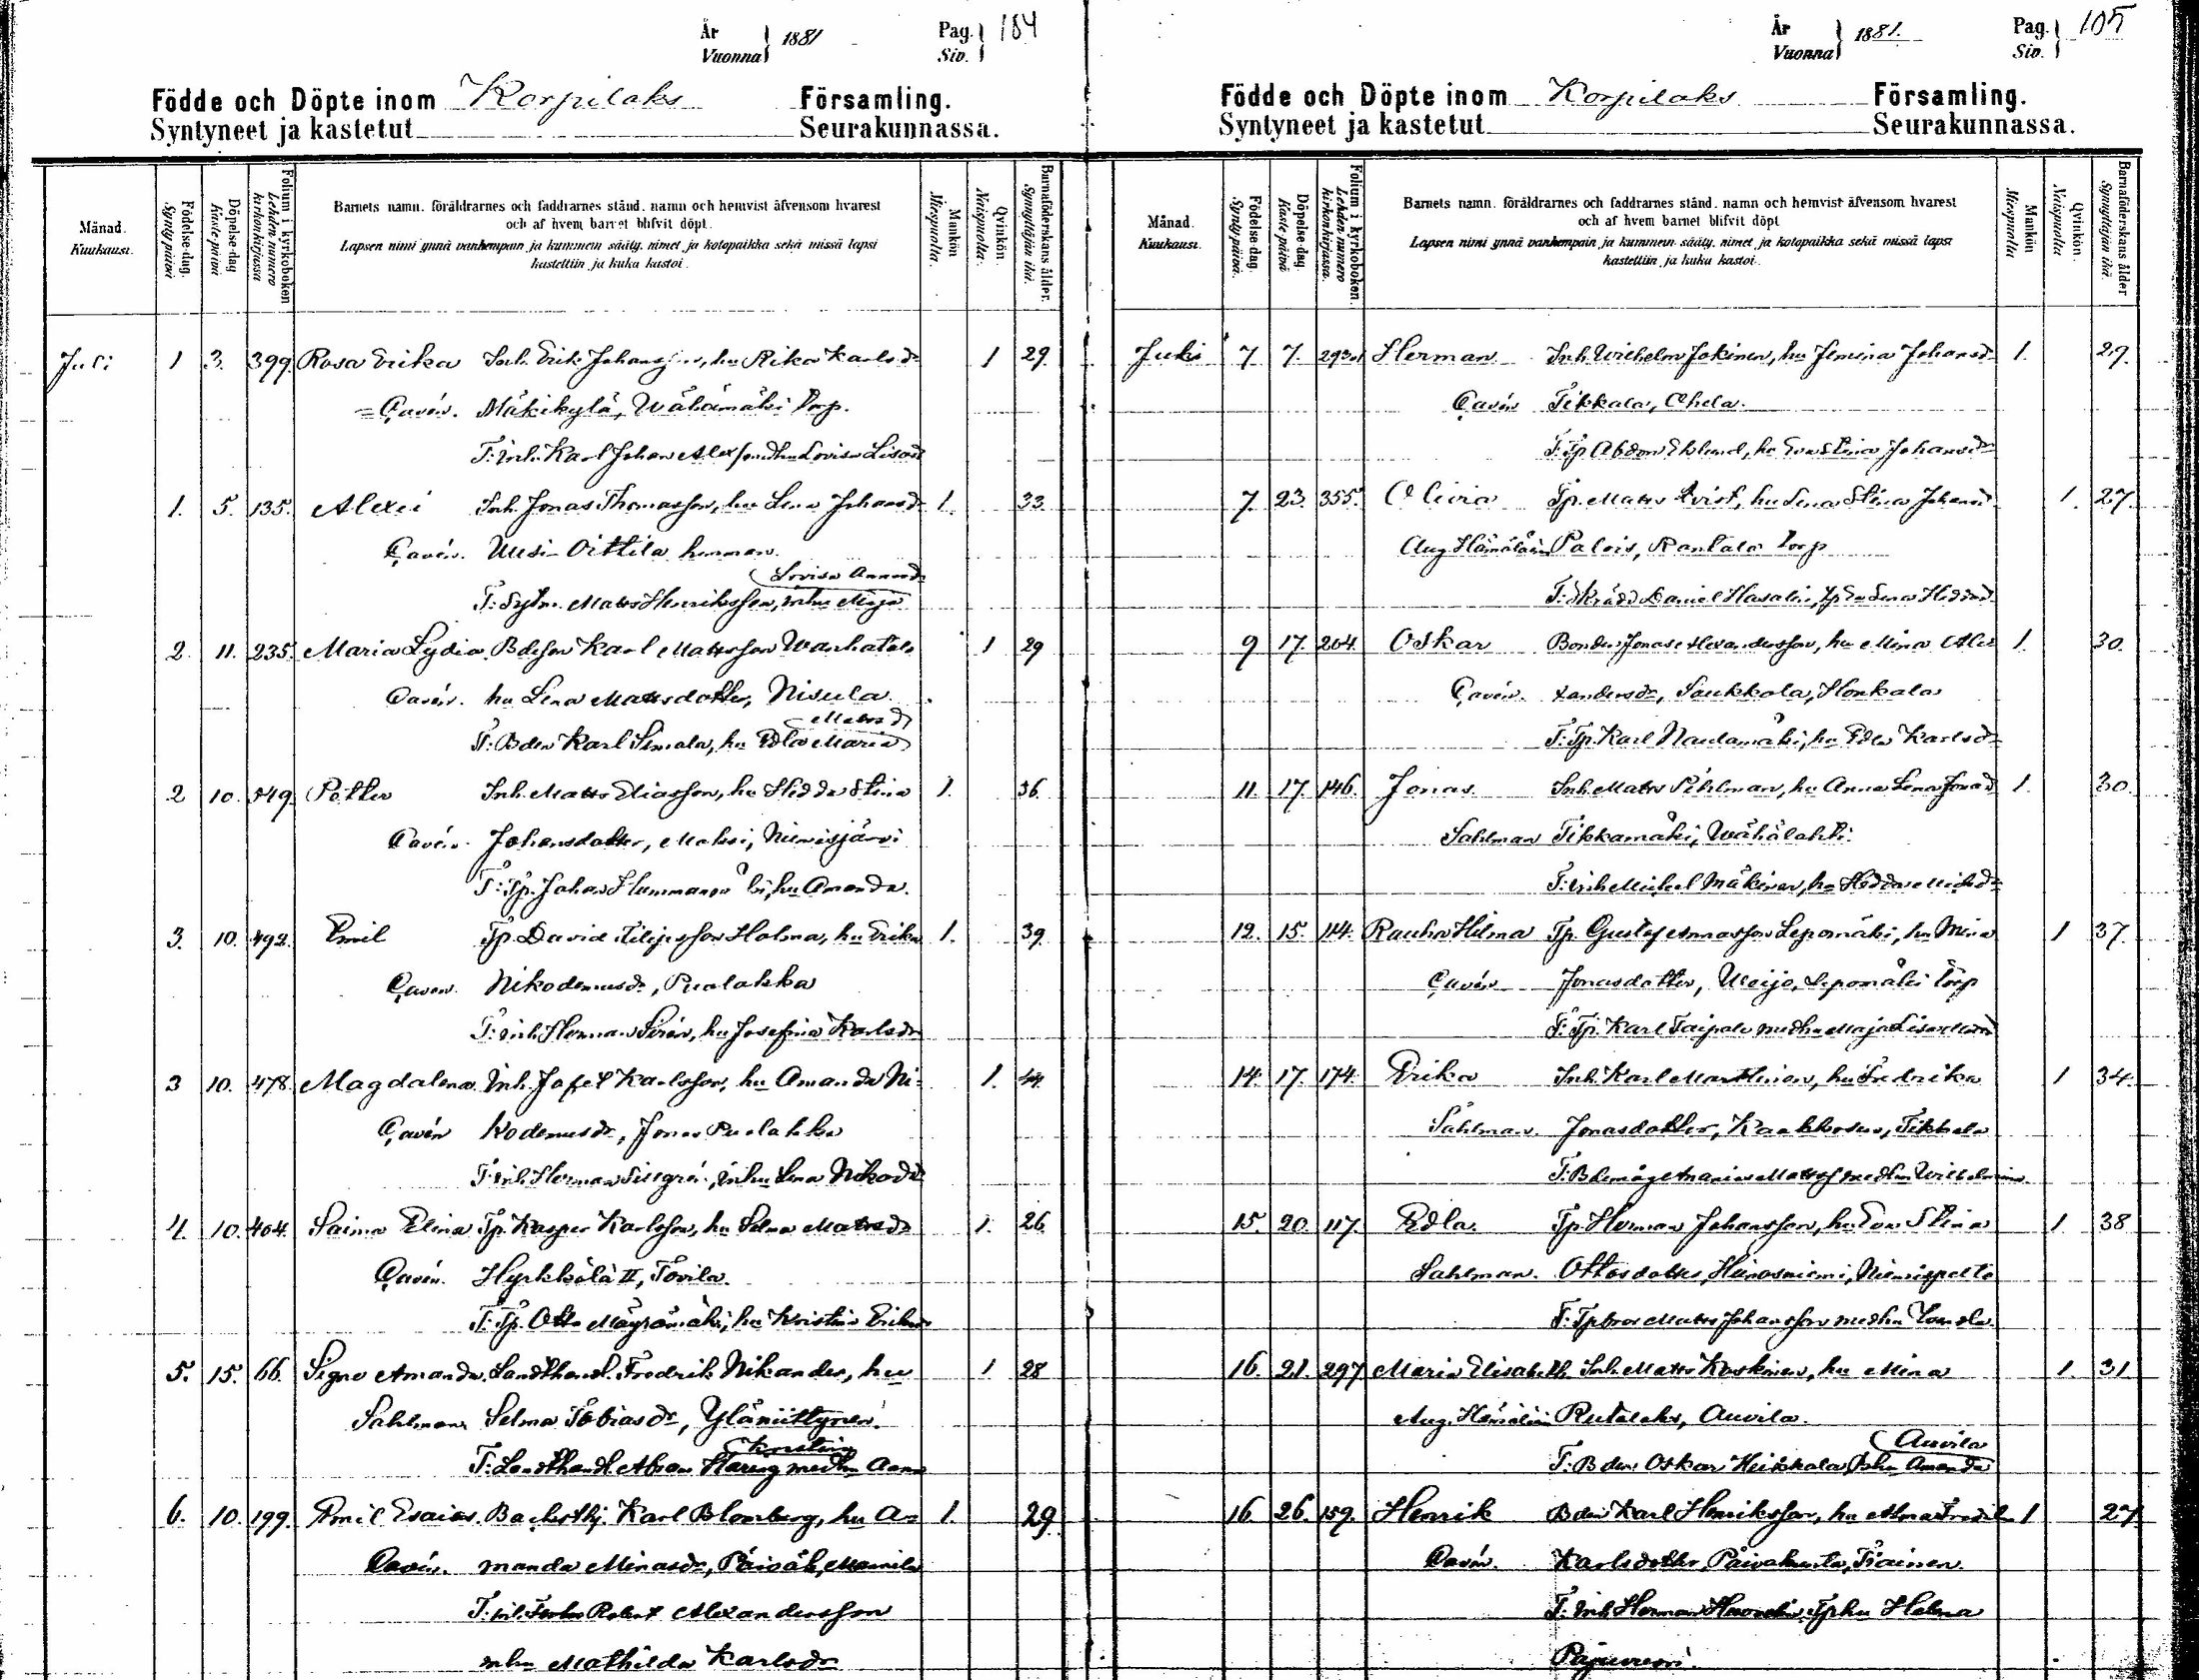 År
Vuonna
1881
Pag.
Siv.
184
Födde och Döpte inom Korpilaks Församling.
Syntyneet ja kastetut Seurakunnassa.
Månad.
Kuukausi.
Födelse-dag.
Synty päivä
Döpelse-dag
Kaste päivä
Folium i kyrkoboken
Lehden numero kirkonkirjassa
Barnets namn, föräldrarnes och faddrarnes stånd, namn och hemvist äfvensom hvarest
och af hvem barnet blifvit döpt.
Lapsen nimi ynnä vanhempain ja kummein sääty, nimet ja kotopaikka sekä missä lapsi
kastettiin ja kuka kastoi.
Mankön
Miespuolta.
Qvinkön.
Naispuolta.
Barnaföderskans ålder.
Synnyttäjän ikä.
Juli 1 3. 399 Rosa Erika Inh. Erik Johansson, hu Rika Karlsdr 1 29.
Cavén. Mäkikylä, Wähämäki torp.
F: Inh. Karl Johan Alexson dhu Lovisa Lisad
1. 5. 135. Alexei Inh. Jonas Thomasson, hu Lena Johansdr 1. 33.
Cavén. Uusi-Oittila hemman.
Lovisa Annasd
F: Sytn. Mats Henriksson, Inhu Maja
2 11. 235. Maria Lydia Bdeson Karl Mattsson Wanhatalo 1 29
Cavén. hu Lena Mattsdotter, Nisula
Matsd
F: Bden Karl Simola, hu Edla Maria
2 10. 349. Petter Inh. Matts Eliasson, hu Hedda Stina 1. 36.
Cavén. Johansdotter, Niinisjärvi
F: Tp. Johan hu Amanda.
3. 10. 492. Emil Tp. David Filipsson Holma, hu Erika 1. 39.
Cavén. Nikodemusdr, Puolakka
F: Inh. Herman Sirén, hu Josefina Karlsdr
3 10. 478. Magdalena Inh. Jafet Karlsson, hu Amanda Ni- 1. 44.
Cavén kodemusdr, Jonas Puolakka
F: Inh. Herman Sillgrén, Inhu Lena Nikodd
4. 10. 404. Saima Elina Tp. Kasper Karlsson, hu Selma Matsdr 1. 26.
Cavén. Hyrkkölä II, Tovila.
F: Tp. Otto Mäyrämäki, hu Kristina Eriksdr
5. 15. 66. Signe Amanda Landthandl. Fredrik Nikander, hu 1 28
Sahlman Selma Tobiasdr, Yläniittynen.
F: Landthandl. Abram Häring medhu Anna
6. 10. 199. Emil Esaias Karl Blomberg, hu A- 1. 29.
Cavén. manda Minasdr, Päiväk,
F: Robert Alexandersson
mhu Mathilda Karlsdr
År
Vuonna
1881.
Pag.
Siv.
185
Födde och Döpte inom Korpilaks Församling.
Syntyneet ja kastetut Seurakunnassa.
Månad.
Kuukausi.
Födelse-dag.
Synty päivä.
Döpelse-dag.
Kaste päivä
Folium i kyrkoboken.
Lehden numero kirkonkirjassa.
Barnets namn, föräldrarnes och faddrarnes stånd, namn och hemvist äfvensom hvarest
och af hvem barnet blifvit döpt
Lapsen nimi ynnä vanhempain ja kummein sääty, nimet ja kotopaikka sekä missä lapsi
kastettiin ja kuka kastoi.
Mankön
Miespuolta
Qvinkön.
Naispuolta
Barnaföderskans ålder
Synnyttäjän ikä.
Juli 7 7. 293 Herman Inh. Wilhelm Jokinen, hu Jemina Johansd 1. 29.
Cavén Tikkala, Ohela.
F: Tp Abdon Eklund, hu Eva Stina Johansdr
7. 23. 355. Olivia Tp. Matts Kvist, hu Lena Stina Johansd 1. 27.
Aug. Hämäläin Palois, Rantala torp
F: Skrädd Daniel
9 17. 204. Oskar Bonden Jonas Alexandersson, hu Mina Alex 1. 30.
Cavén. xandersdr, Saukkola, Honkala
F: Tp. Karl Naulamäki, hu Edla Karlsdr
11. 17. 146. Jonas Inh. Matts Pihlman, hu Anna Lena Jonasd 1. 30.
Sahlman Tikkamäki, Wähälahti.
F: Inh. Michel Mäkinen, hu Hedda Michelsdr
12. 15. 114. Rauha Hilma Tp. Gustaf Annasson Lepomäki, hu Mina 1 37.
Cavén Jonasdotter, Weijo, Lepomäki torp
F: Tp. Karl Taipale medhu Maja Lisa
14. 17. 174. Erika Inh. Karl Marttinen, hu Fredrika 1 34.
Sahlman. Jonasdotter, Tikkala
F: Bdemåg Ananias Mattss medhu Wilhelmina
15. 20. 117. Edla Tp. Herman Johansson, hu Eva Stina 1 38
Sahlman. Ottosdotter, Hiinosniemi, Niemispelto
F: Tpbror Matts Johansson medhu
16. 21. 297 Maria Elisabeth Inh. Matts Koskinen, hu Mina 1. 31
Aug. Hämäläin Rutalaks, Auvila.
Auvila
F: Bden Oskar Heikkala, Bhu Amanda
16. 26. 159. Henrik Bden Karl Henriksson, hu Alma Fredrika 1 27
Cavén. Karlsdotter, Päiväkunta, Tiainen.
F: Inh. Herman Tphu Helena
Pajuvuori.